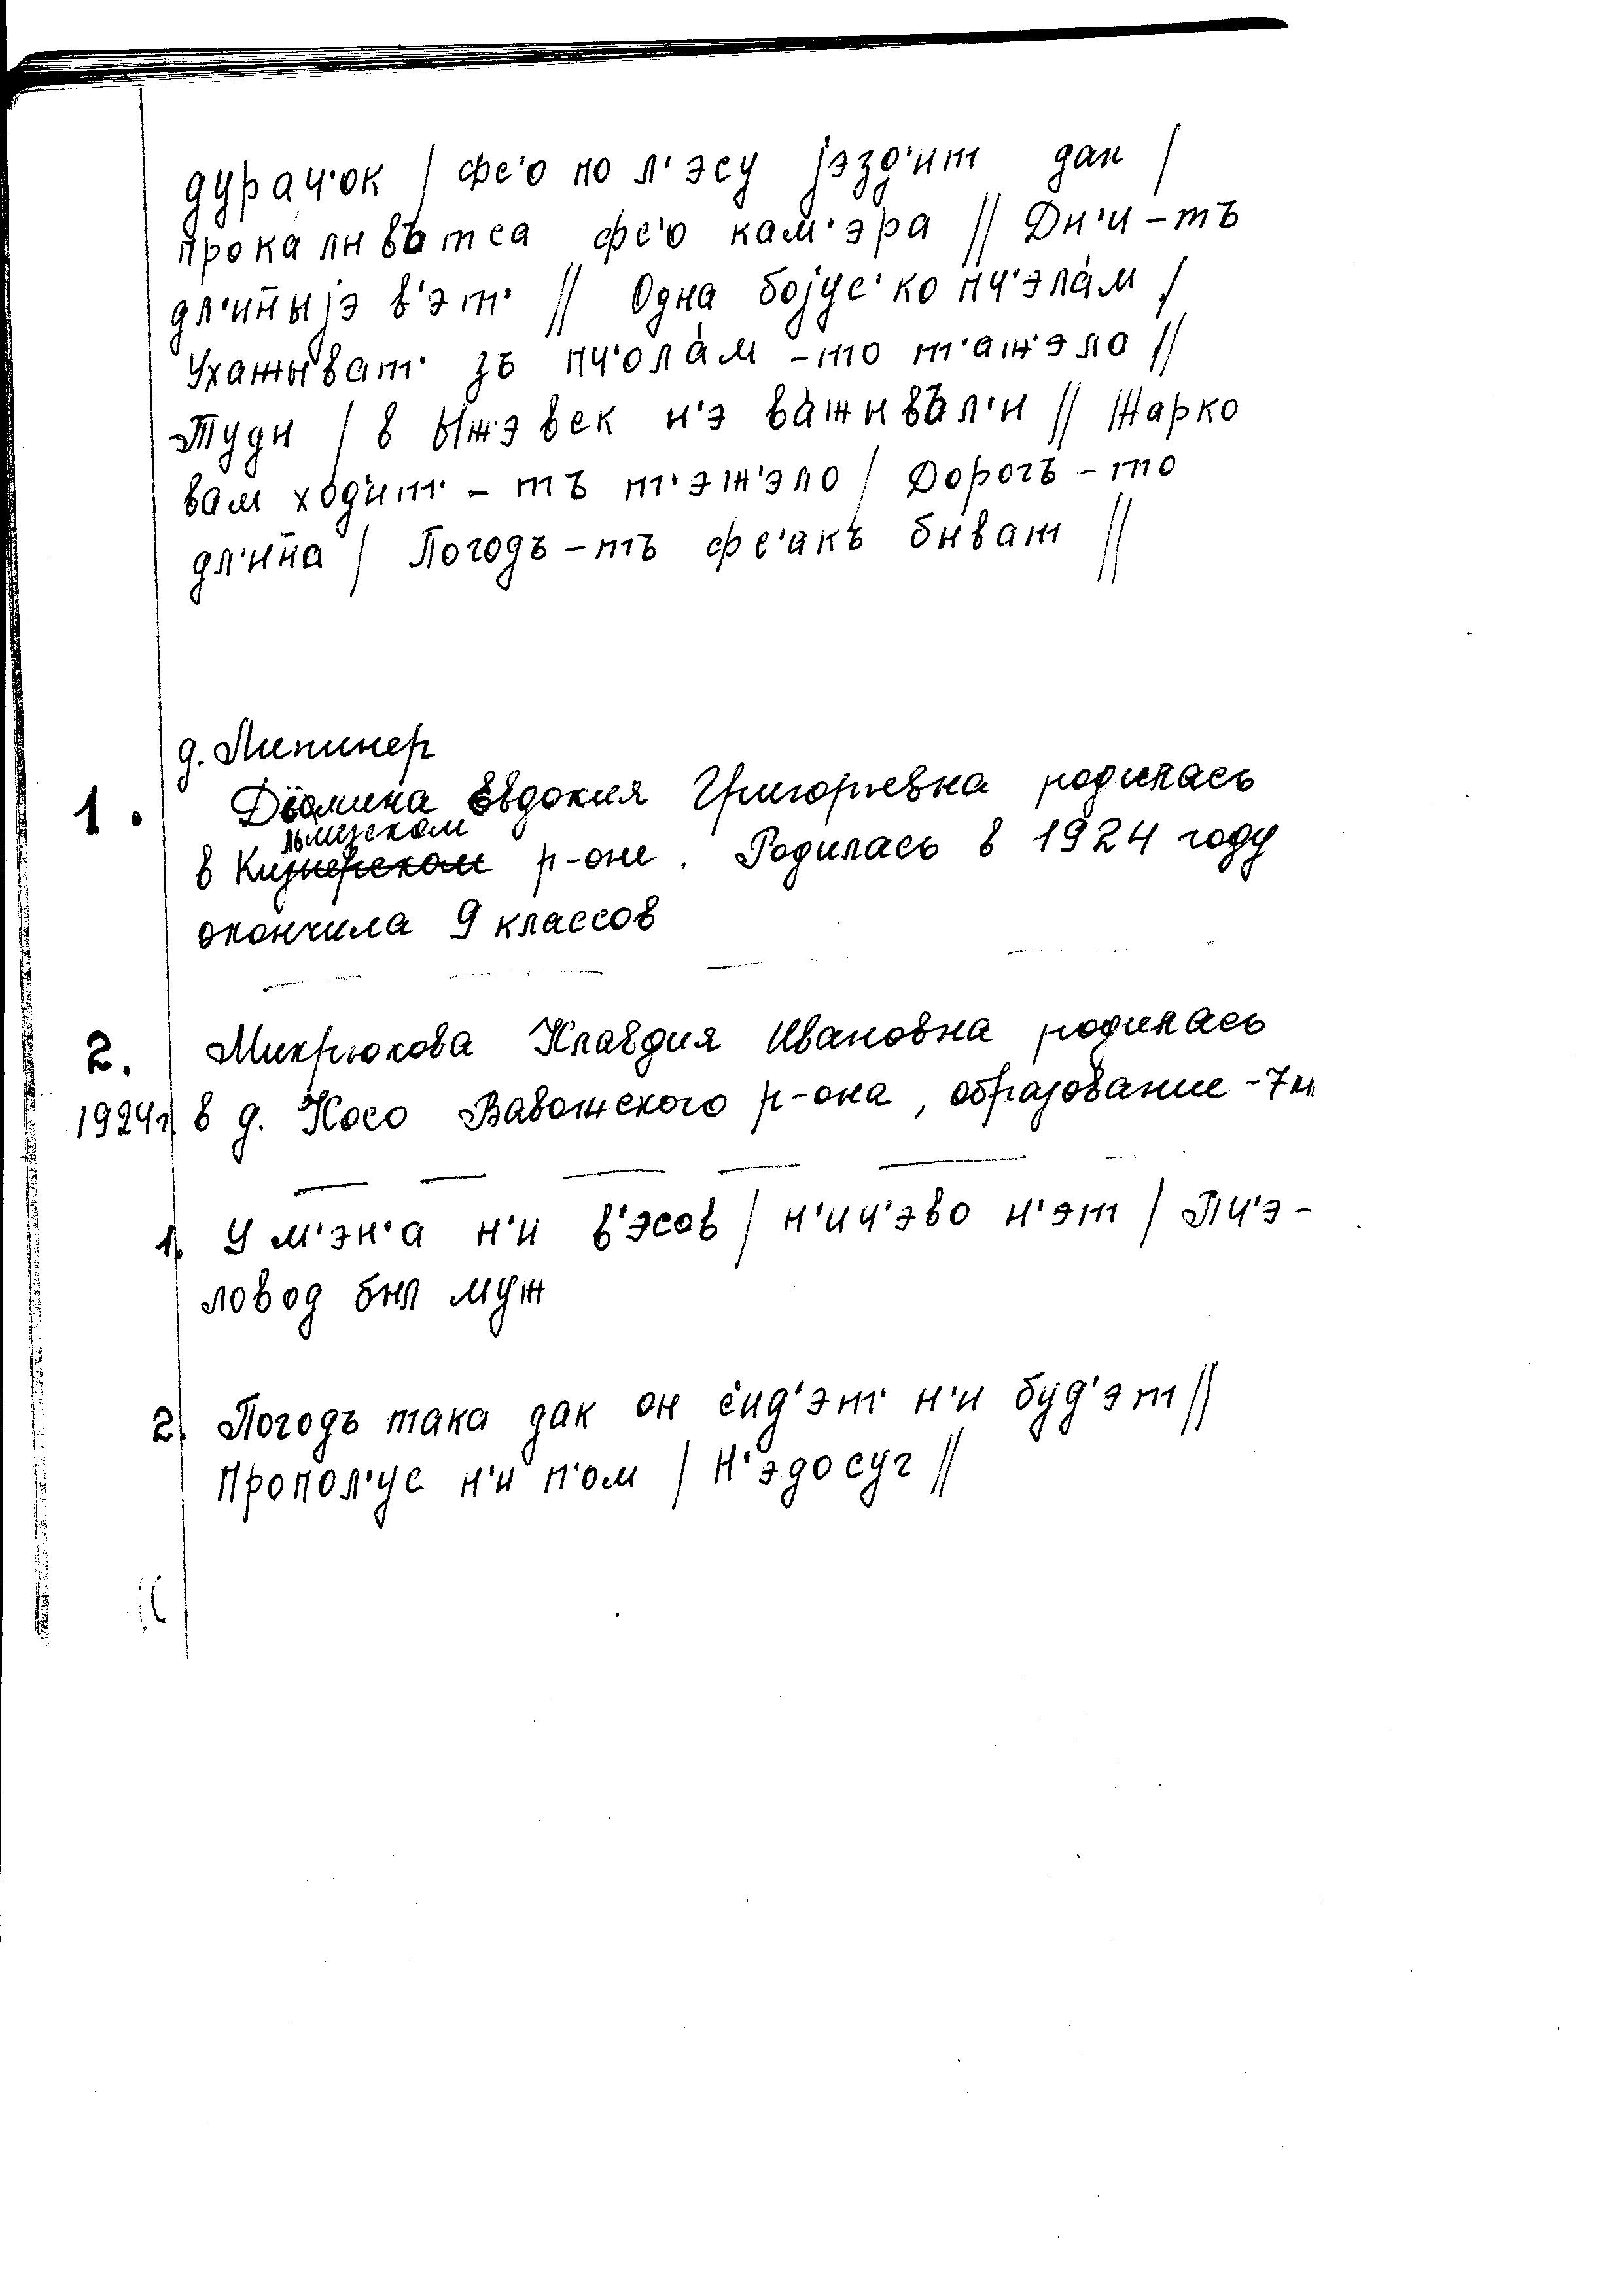 дурач'ок / фс'о по л'эсу jэзд'ит дак /
прокалывътса фс'о кам'эра // Дн'и-тъ
дл'ин̄ыjэ в'эт' // Одна боjус' ко пч'эла́м /
Ухажыват' зъ пч'ола́м -то т'аж'эло //
Туды / в Ыжэвск н'э ва́жывъл'и // Жарко
вам ход'ит' - тъ т'эж'эло / Дорогъ - то
дл'ин̄а / Погодъ-тъ фс'акъ быват //
д. Липинер
1. Дёмина Евдокия Григорьевна родилась
льмезском
в Кизнерском р-оне. Родилась в 1924 году
окончила 9 классов
2. Микрюкова Клавдия Ивановна родилась
1924г. в д. Косо Вавожского р-она, образование - 7 кл
1. У м'эн'а н'и в'эсов / н'ич'эво н'эт / Пч'э-
ловод был муж
2. Погодъ така дак он с'ид'эт' н'и буд'эт //
Пропол'ус н'и п'ом / Н'эдосуг //